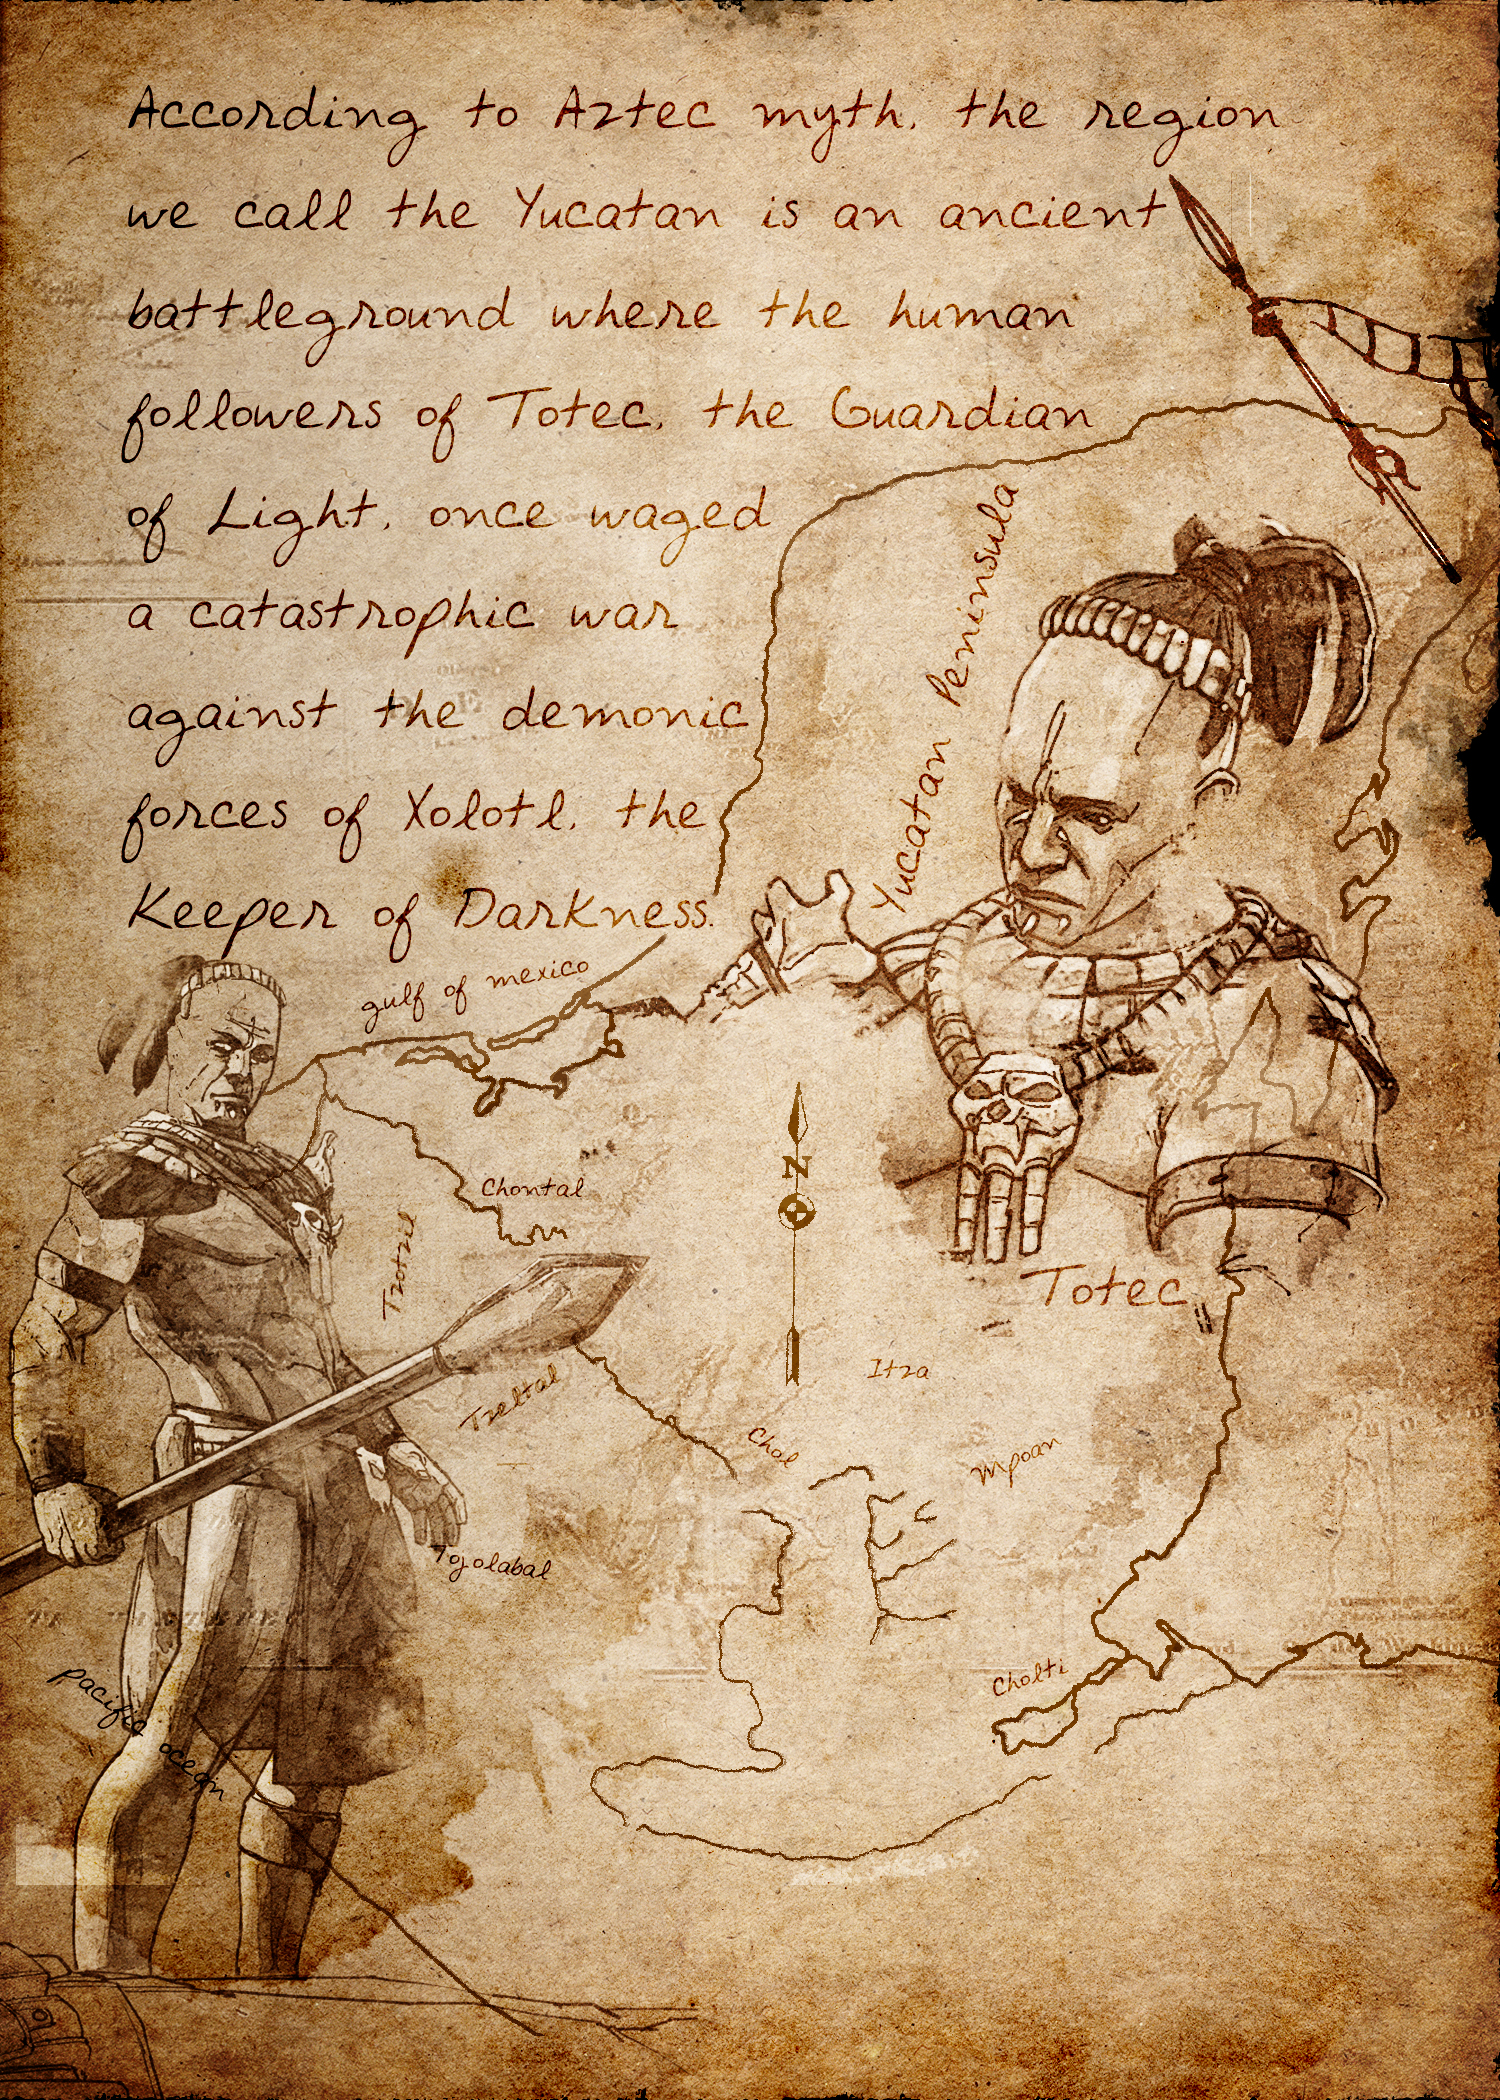 According to Aztec myth, the region
we call the Yucatan is an ancient
battleground where the human
followers of Totec, the Guardian
of Light, once waged
a catastrophic war
against the demonic
forces of Xolotl, the
Keeper of Darkness.
Yucatan Peninsula
gulf of mexico
Chontal
Tzotzil
N
Totec
Itza
Tzeltal
Chol
Mpoan
Tojolabal
Cholti
pacific ocean